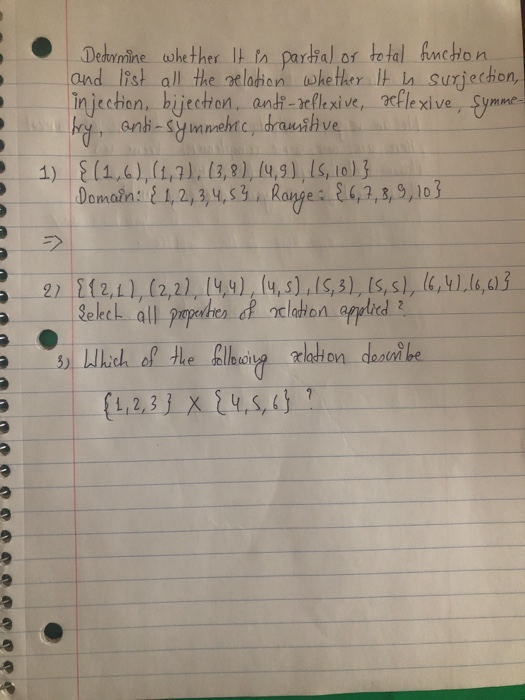 Determine whether It is partial or total function
and list all the relation whether It is surjection,
injection, bijection, anti-reflexive, reflexive, symme-
try, anti-symmetric, transitive
1) {(1,6),(1,7),(3,8),(4,9),(5,10)}
Domain: {1,2,3,4,5}, Range: {6,7,8,9,10}
=>
2) {(2,1),(2,2),(4,4),(4,5),(5,3),(5,5),(6,4),(6,6)}
Select all properties of relation applied?
3) Which of the following relation describe
{1,2,3} X {4,5,6} ?